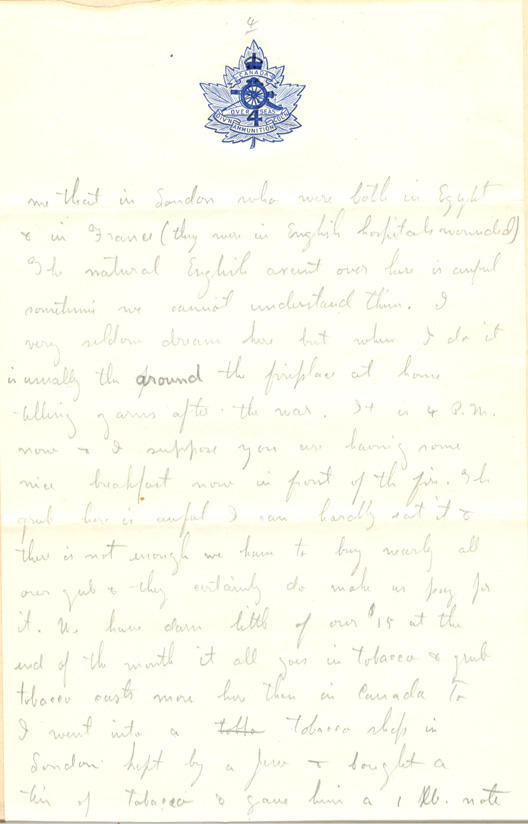 4
CANADA
OVER SEAS
4
DIVN AMMUNITION COL
me that in London who were both in Egypt
& in France (they were in English hospitals wounded)
The natural English accent over here is awful
sometimes we cannot understand them. I
very seldom dream here but when I do it
is usually the around the fireplace at home
telling yarns after the war. It is 4 P.M.
now & I suppose you are having some
nice breakfast now in front of the fire. The
grub here is awful I can hardly eat it &
there is not enough we have to buy nearly all
our grub & they certainly do make us pay for
it. We have darn little of our $15 at the
end of the month it all goes in tobacco & grub
tobacco costs more here then in Canada To
I went into a tobba tobacco shop in
London kept by a Jew & bought a
tin of tobacco & gave him a 1 lb. note